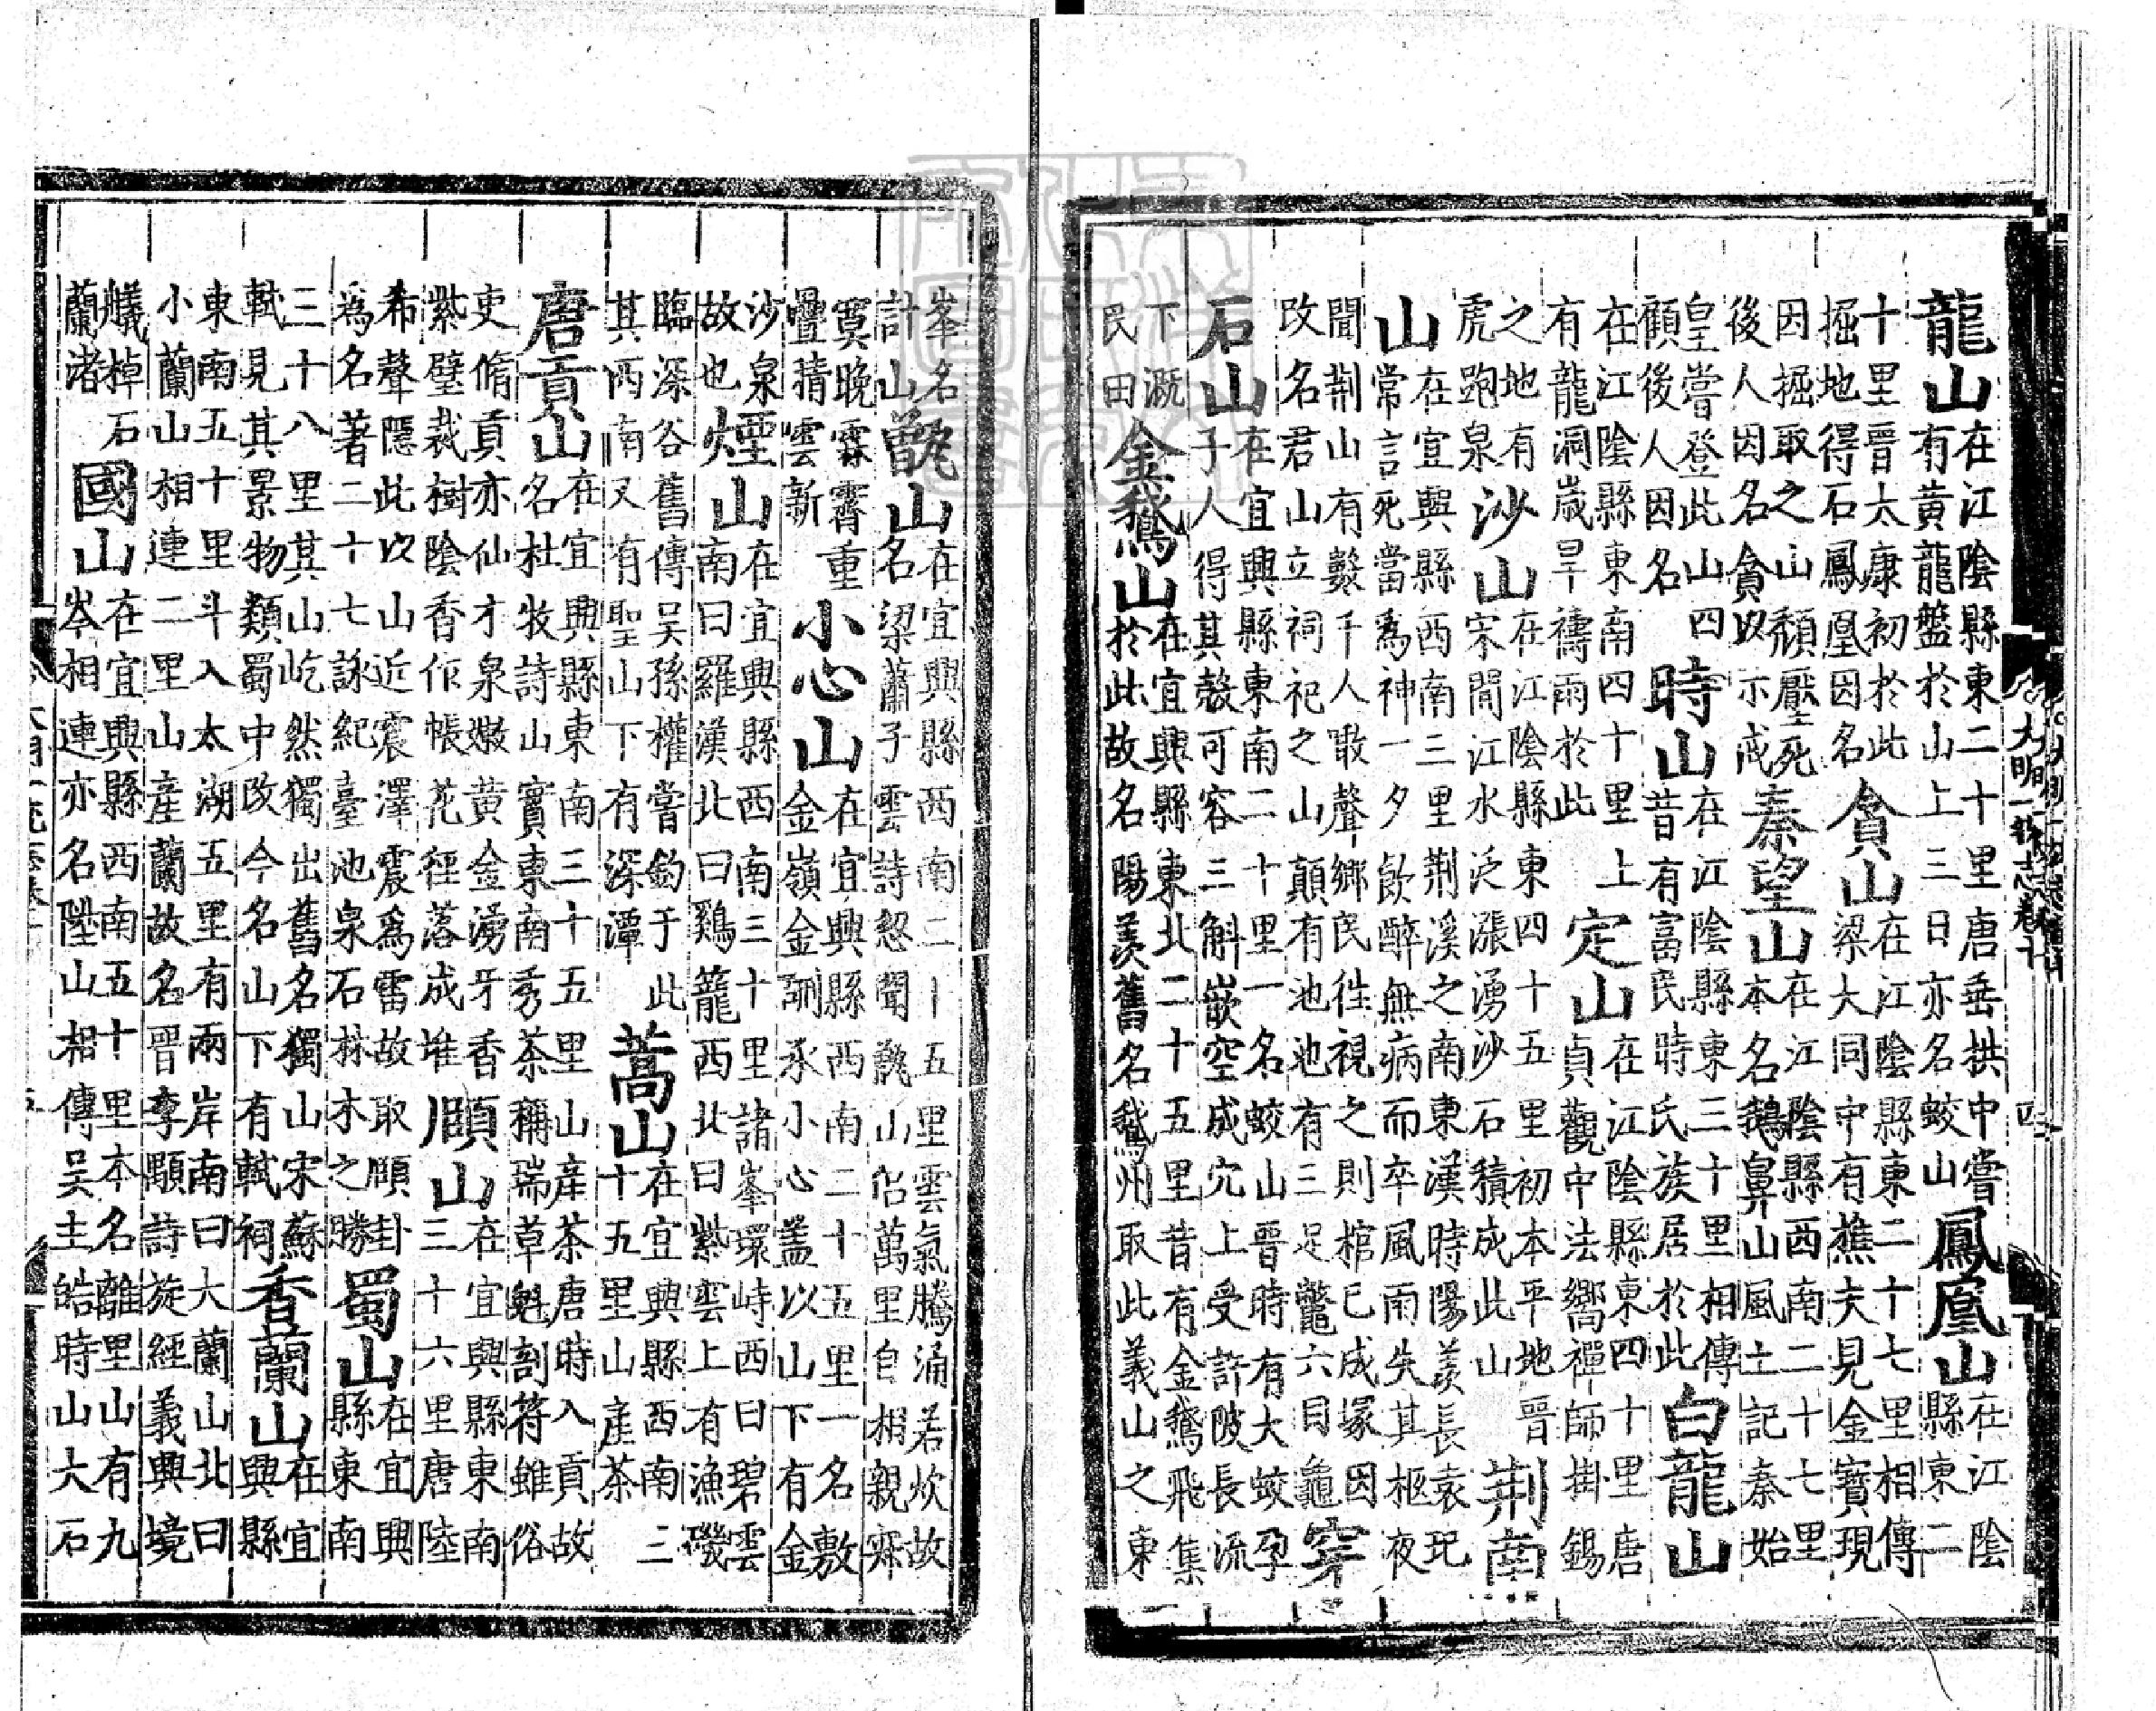 龍山在江陰縣東二十里唐垂拱中嘗有黃龍盤於山上三日亦名蛟山鳳凰山在江陰縣東二
十里晉太康初於此掘地得石鳳凰因名貪山在江陰縣東二十七里相傳梁大同中有樵夫見金寶現
因掘取之山頹壓死後人因名貪以示戒秦望山在江陰縣西南二十七里本名鵝鼻山風土記秦始
皇嘗登此山四顧後人因名時山在江陰縣東三十里相傳昔有富民時氏族居於此白龍山
在江陰縣東南四十里上有龍洞歲旱禱雨於此定山在江陰縣東四十里唐貞觀中法嚮禪師掛錫
之地有虎跑泉沙山在江陰縣東四十五里初本平地晉宋間江水泛漲湧沙石積成此山荆南
山在宜興縣西南三里荆溪之南東漢時陽羨長袁玘常言死當為神一夕飲醉無病而卒風雨失其柩夜
聞荆山有數千人噉聲鄉民徃視之則棺已成冢因改名君山立祠祀之山顛有池池有三足鼈六目龜穿
石山在宜興縣東南二十里一名蛟山晉時有大蛟孕子人得其㲉可容三斛嵌空成穴上受許陂長流
下溉民田金鵝山在宜興縣東北二十五里昔有金鵝飛集於此故名陽羨舊名鵝州取此義山之東
大明一統志卷十 四
峯名計山甑山在宜興縣西南二十五里雲氣騰涌若炊故名梁蕭子雲詩忽聞甑山侶萬里自相親寐
冥晚霖霽重疊猜雲新小心山在宜興縣西南二十五里一名敷金嶺金承小心蓋以山下有金
沙泉故也煙山在宜興縣西南三十里諸峯環峙西曰碧雲南曰羅漢北曰鷄籠西北曰紫雲上有漁磯
臨深谷舊傳吳孫權嘗釣于此其西南又有聖山下有深潭蒿山在宜興縣西南三十五里山產茶
唐貢山在宜興縣東南三十五里山產茶唐時入貢故名杜牧詩山實東南秀茶稱瑞草魁剖符雖俗
吏脩貢亦仙才泉嫩黃金湧牙香紫璧裁樹陰香作帳花徑落成堆頤山在宜興縣東南三十六里唐陸
希聲隱此以山近震澤震為雷故取頤卦為名著二十七詠紀臺池泉石林木之勝蜀山在宜興縣東南
三十八里其山屹然獨出舊名獨山宋蘇軾見其景物類蜀中改今名山下有軾祠香蘭山在宜興縣
東南五十里斗入太湖五里有兩岸南曰大蘭山北曰小蘭山相連二里山產蘭故名晉李顒詩旋經義興境
艤棹石蘭渚國山在宜興縣西南五十里本名離里山有九岑相連亦名陞山相傳吳主皓時山大石